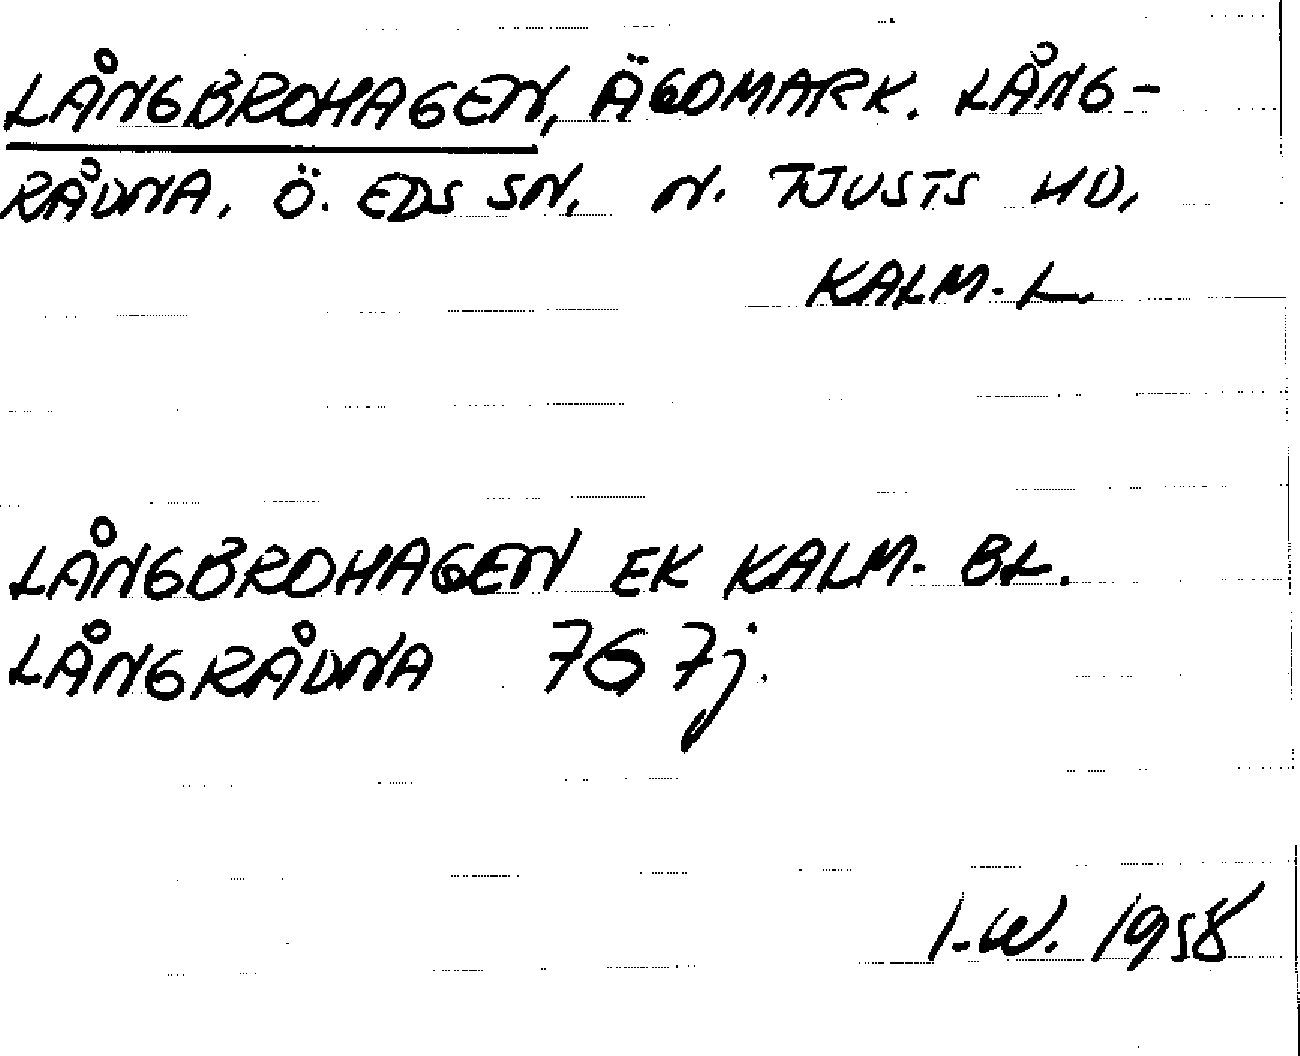 LÅNGBROHAGEN, ÄGOMARK. LÅNG-
RÅDNA, Ö. EDS SN, N. TJUSTS HD,
KALM. L.
LÅNGBROHAGEN EK KALM. BL.
LÅNGRÅDNA 767j.
I.W. 1958